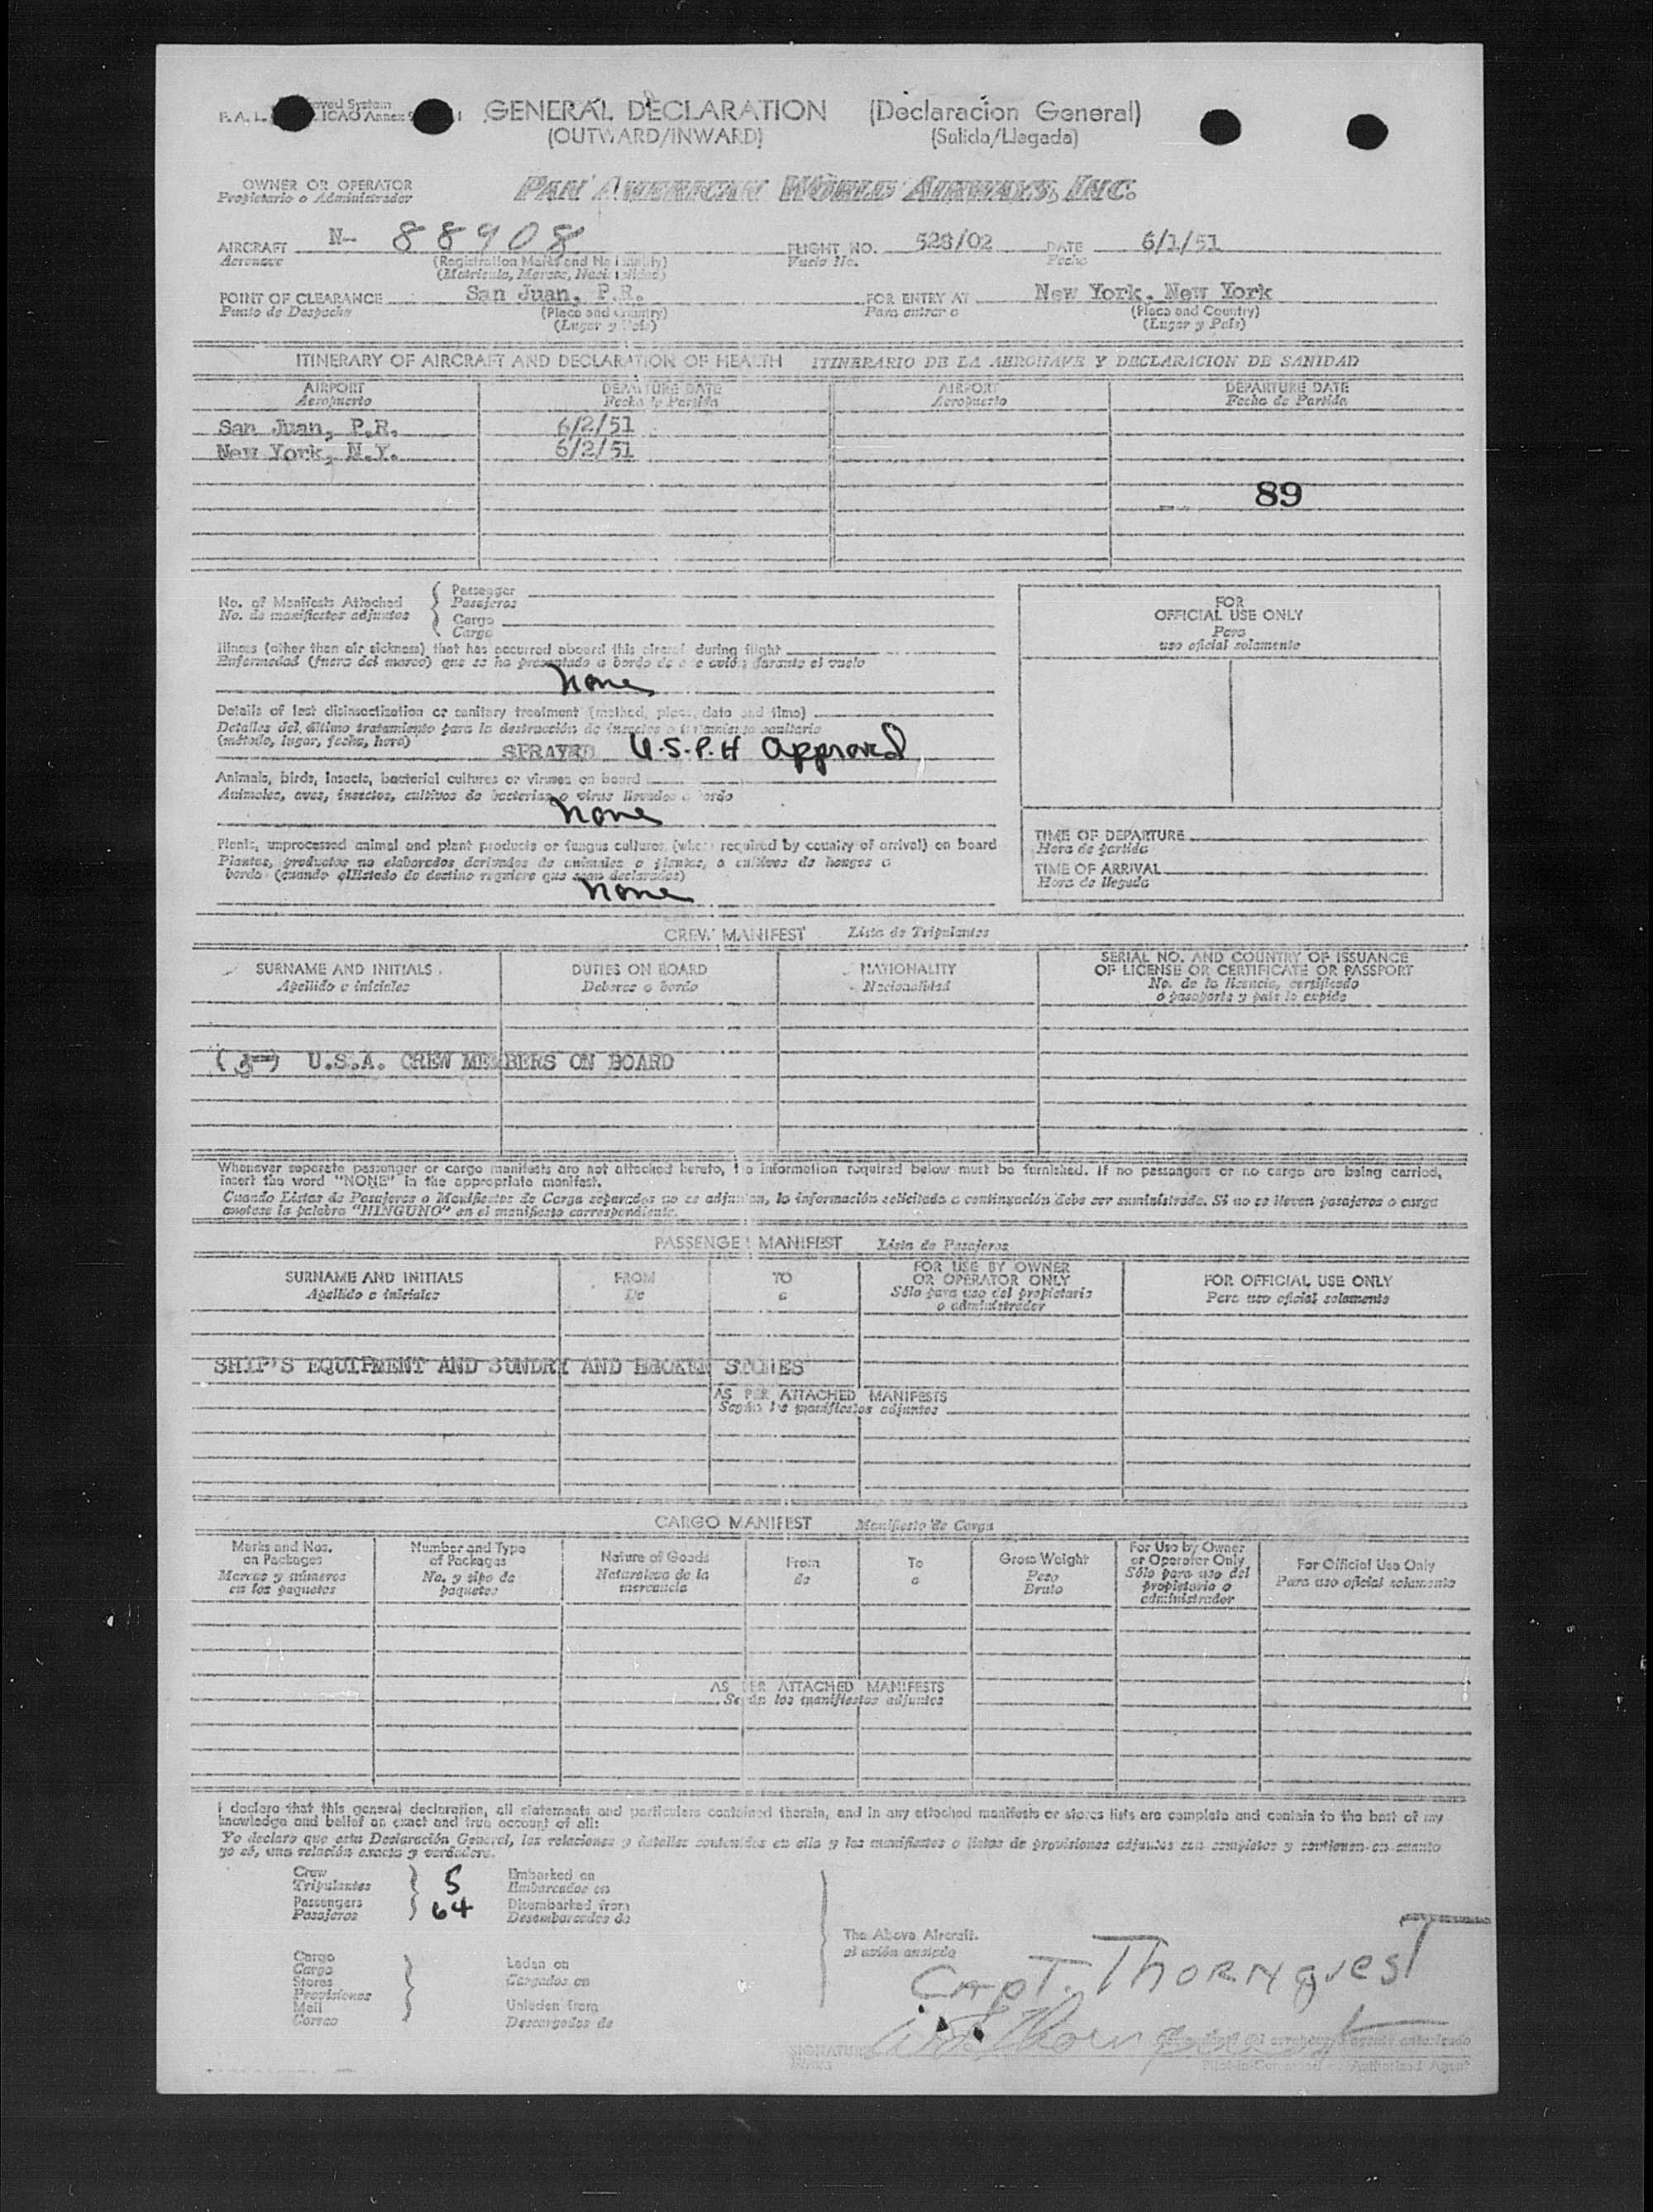 GENERAL DECLARATION (Declaracion General)
(OUTWARD/INWARD) (Salida/Llegada)
OWNER OR OPERATOR PAN AMERICAN WORLD AIRWAYS, INC.
Propietario o Administrador
AIRCRAFT N- 88908 FLIGHT NO. 528/02 DATE 6/1/51
Aeronave (Registration Marks and Nationality) Vuelo No. Fecha
(Matricula, Marcas, Nacionalidad)
POINT OF CLEARANCE San Juan, P.R. FOR ENTRY AT New York, New York
Punto de Despacho (Place and Country) Para entrar a (Place and Country)
(Lugar y País) (Lugar y País)
ITINERARY OF AIRCRAFT AND DECLARATION OF HEALTH ITINERARIO DE LA AERONAVE Y DECLARACION DE SANIDAD
AIRPORT DEPARTURE DATE AIRPORT DEPARTURE DATE
Aeropuerto Fecha de Partida Aeropuerto Fecha de Partida
San Juan, P.R. 6/2/51
New York, N.Y. 6/2/51
89
No. of Manifests Attached Passenger
No. de manifiestos adjuntos Pasajeros
Cargo
Cargo
FOR
OFFICIAL USE ONLY
Para
uso oficial solamente
Illness (other than air sickness) that has occurred aboard this aircraft during flight
Enfermedad (fuera del mareo) que se ha presentado a bordo de este avión durante el vuelo
None
Details of last disinsectization or sanitary treatment (method, place, date and time)
Detalles del último tratamiento para la destrucción de insectos o tratamiento sanitario
(método, lugar, fecha, hora)
SPRAYED U.S.P.H Approved
Animals, birds, insects, bacterial cultures or viruses on board
Animales, aves, insectos, cultivos de bacterias o virus llevados a bordo
None
Plants, unprocessed animal and plant products or fungus cultures (when required by country of arrival) on board
Plantas, productos no elaborados derivados de animales o plantas, o cultivos de hongos a
bordo (cuando el Estado de destino requiere que sean declarados)
None
TIME OF DEPARTURE
Hora de partida
TIME OF ARRIVAL
Hora de llegada
CREW MANIFEST Lista de Tripulantes
SURNAME AND INITIALS DUTIES ON BOARD NATIONALITY SERIAL NO. AND COUNTRY OF ISSUANCE
OF LICENSE OR CERTIFICATE OR PASSPORT
Apellido e iniciales Deberes a bordo Nacionalidad No. de la licencia, certificado
o pasaporte y país lo expide
U.S.A. CREW MEMBERS ON BOARD
Whenever separate passenger or cargo manifests are not attached hereto, the information required below must be furnished. If no passengers or no cargo are being carried,
insert the word "NONE" in the appropriate manifest.
Cuando Listas de Pasajeros o Manifiestos de Carga separados no se adjuntan, la información solicitada a continuación debe ser suministrada. Si no se llevan pasajeros o carga
anotese la palabra "NINGUNO" en el manifiesto correspondiente.
PASSENGER MANIFEST Lista de Pasajeros
SURNAME AND INITIALS FROM TO FOR USE BY OWNER
OR OPERATOR ONLY FOR OFFICIAL USE ONLY
Apellido e iniciales De a Sólo para uso del propietario
o administrador Para uso oficial solamente
SHIP'S EQUIPMENT AND SUNDRY AND BROKEN STORES
AS PER ATTACHED MANIFESTS
Según los manifiestos adjuntos
CARGO MANIFEST Manifiesto de Carga
Marks and Nos.
on Packages
Marcas y números
en los paquetes
Number and Type
of Packages
No. y tipo de
paquetes
Nature of Goods
Naturaleza de la
mercancia
From
de
To
a
Gross Weight
Peso
Bruto
For Use by Owner
or Operator Only
Sólo para uso del
propietario o
administrador
For Official Use Only
Para uso oficial solamente
AS PER ATTACHED MANIFESTS
Según los manifiestos adjuntos
I declare that this general declaration, all statements and particulars contained therein, and in any attached manifests or stores lists are complete and contain to the best of my
knowledge and belief an exact and true account of all:
Yo declaro que esta Declaración General, las relaciones y detalles contenidos en ella y los manifiestos o listas de provisiones adjuntos son completos y contienen en cuanto
yo sé, una relación exacta y verdadera.
Crew 5 Embarked on
Tripulantes Embarcados en
Passengers 64 Disembarked from
Pasajeros Desembarcados de
The Above Aircraft.
Cargo
Carga
Stores
Provisiones
Mail
Correo
Laden on
Cargados en
Unladen from
Descargados de
CAPT. THORNQUEST
SIGNATURE
Pilot-in-Command Authorized Agent